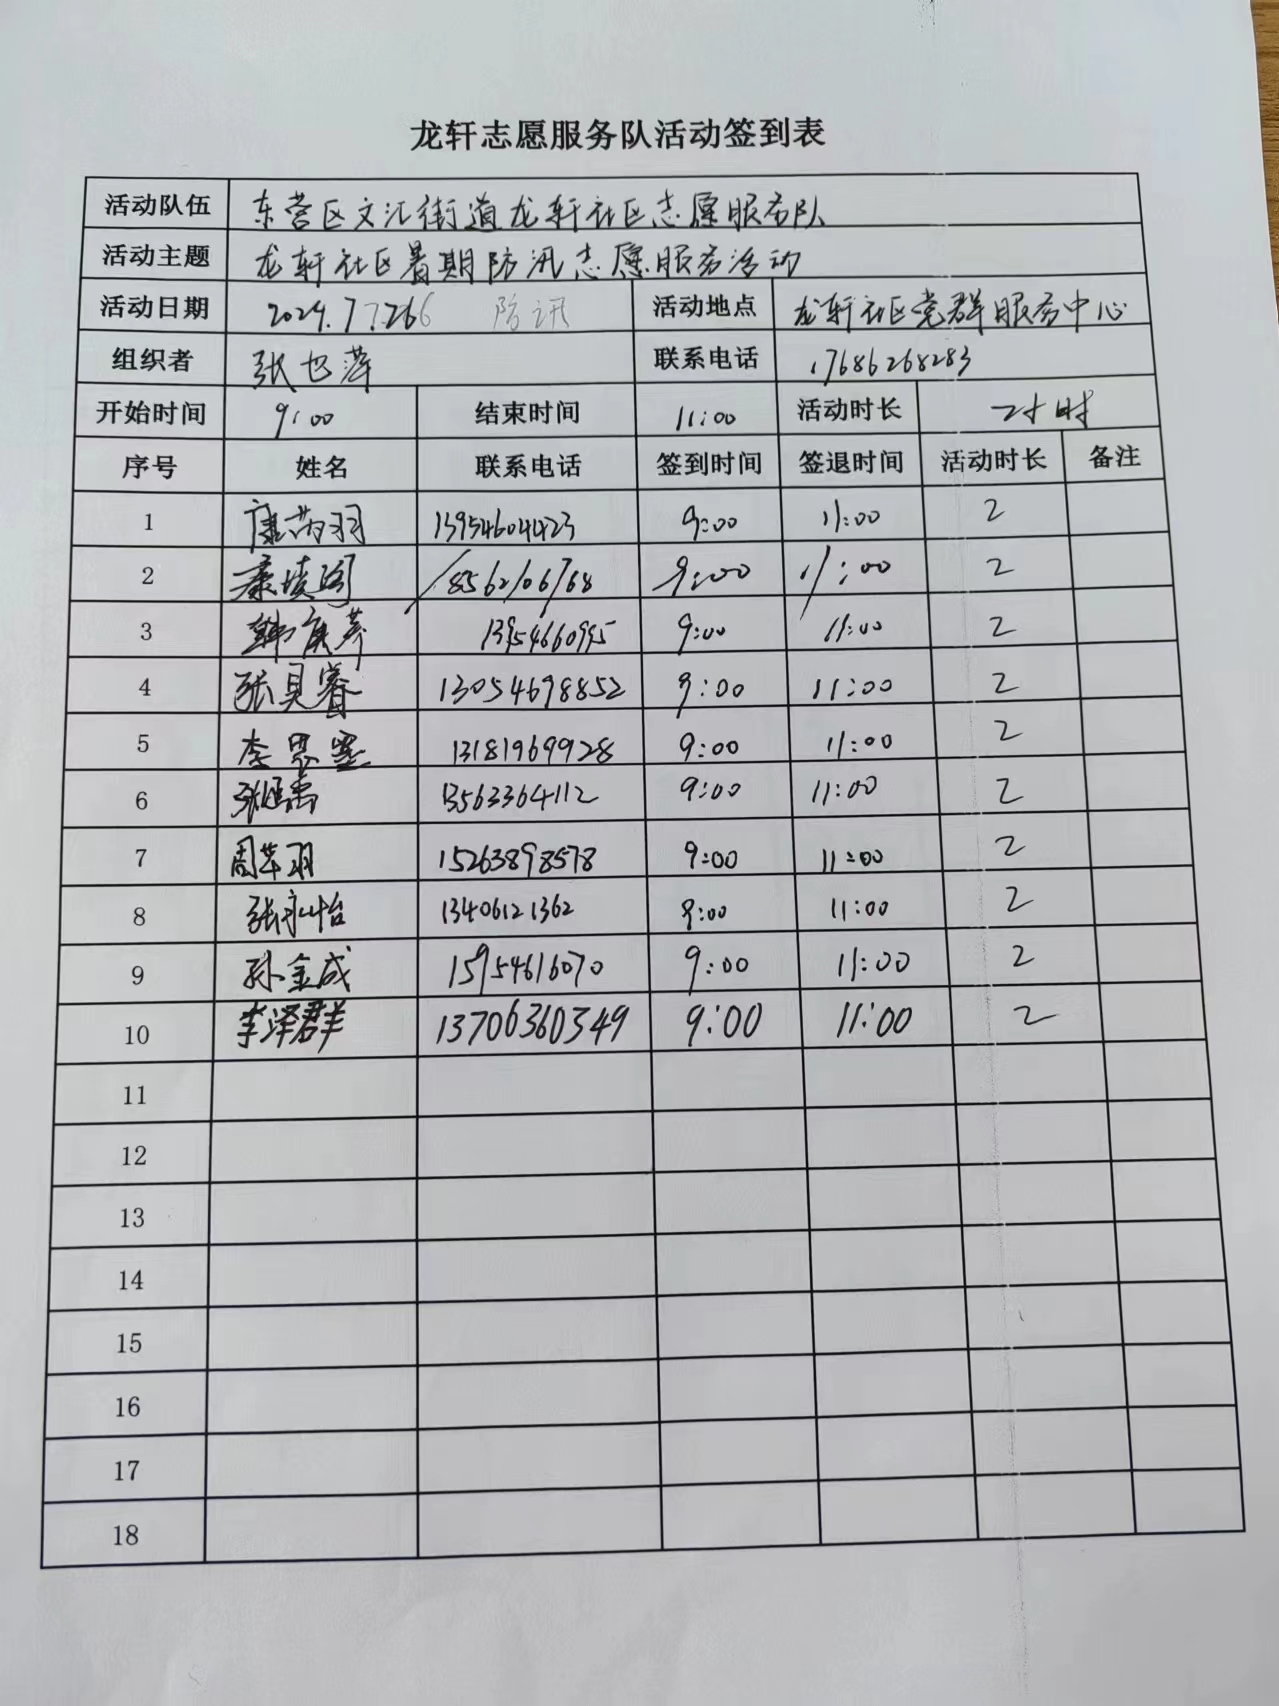 龙轩志愿服务队活动签到表
活动队伍 东营区文汇街道龙轩社区志愿服务队
活动主题 龙轩社区暑期防汛志愿服务活动
活动日期 2024.7 防讯 活动地点 龙轩社区党群服务中心
组织者 张 萍 联系电话 17686268283
开始时间 9:00 结束时间 11:00 活动时长 2小时
序号 姓名 联系电话 签到时间 签退时间 活动时长 备注
1 康芮羽 13954604423 9:00 11:00 2
2 18562106768 9:00 11:00 2
3 韩 13954660995 9:00 11:00 2
4 张贝睿 13054698852 9:00 11:00 2
5 李思 13181969928 9:00 11:00 2
6 张 13563364112 9:00 11:00 2
7 周芊羽 15263898578 9:00 11:00 2
8 张 怡 13406121362 9:00 11:00 2
9 孙金成 15954616070 9:00 11:00 2
10 李泽群 13706360349 9:00 11:00 2
11
12
13
14
15
16
17
18